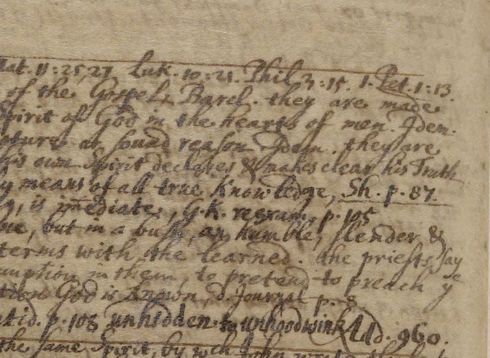 Mat. 11:25,27. Luk. 10:21. Phil. 3:15. 1. Pet. 1:13.
of the Gospel, Barcl. they are made
Spirit of God in the hearts of men. Idem.
or sound reason Idem. they are
his own Spirit declares & makes clear his Truth
y means of all true Knowledge, Sh. p. 87.
is imediate, G. K. p. 105
one, but in a bush, an humble, slender &
terms with the learned. the priests say
in them, to pretend to preach y
God is known, d. Journal p. 8
p. 108 unhidden to unhoodwink Ld. 960.
the same Spirit, by wch John